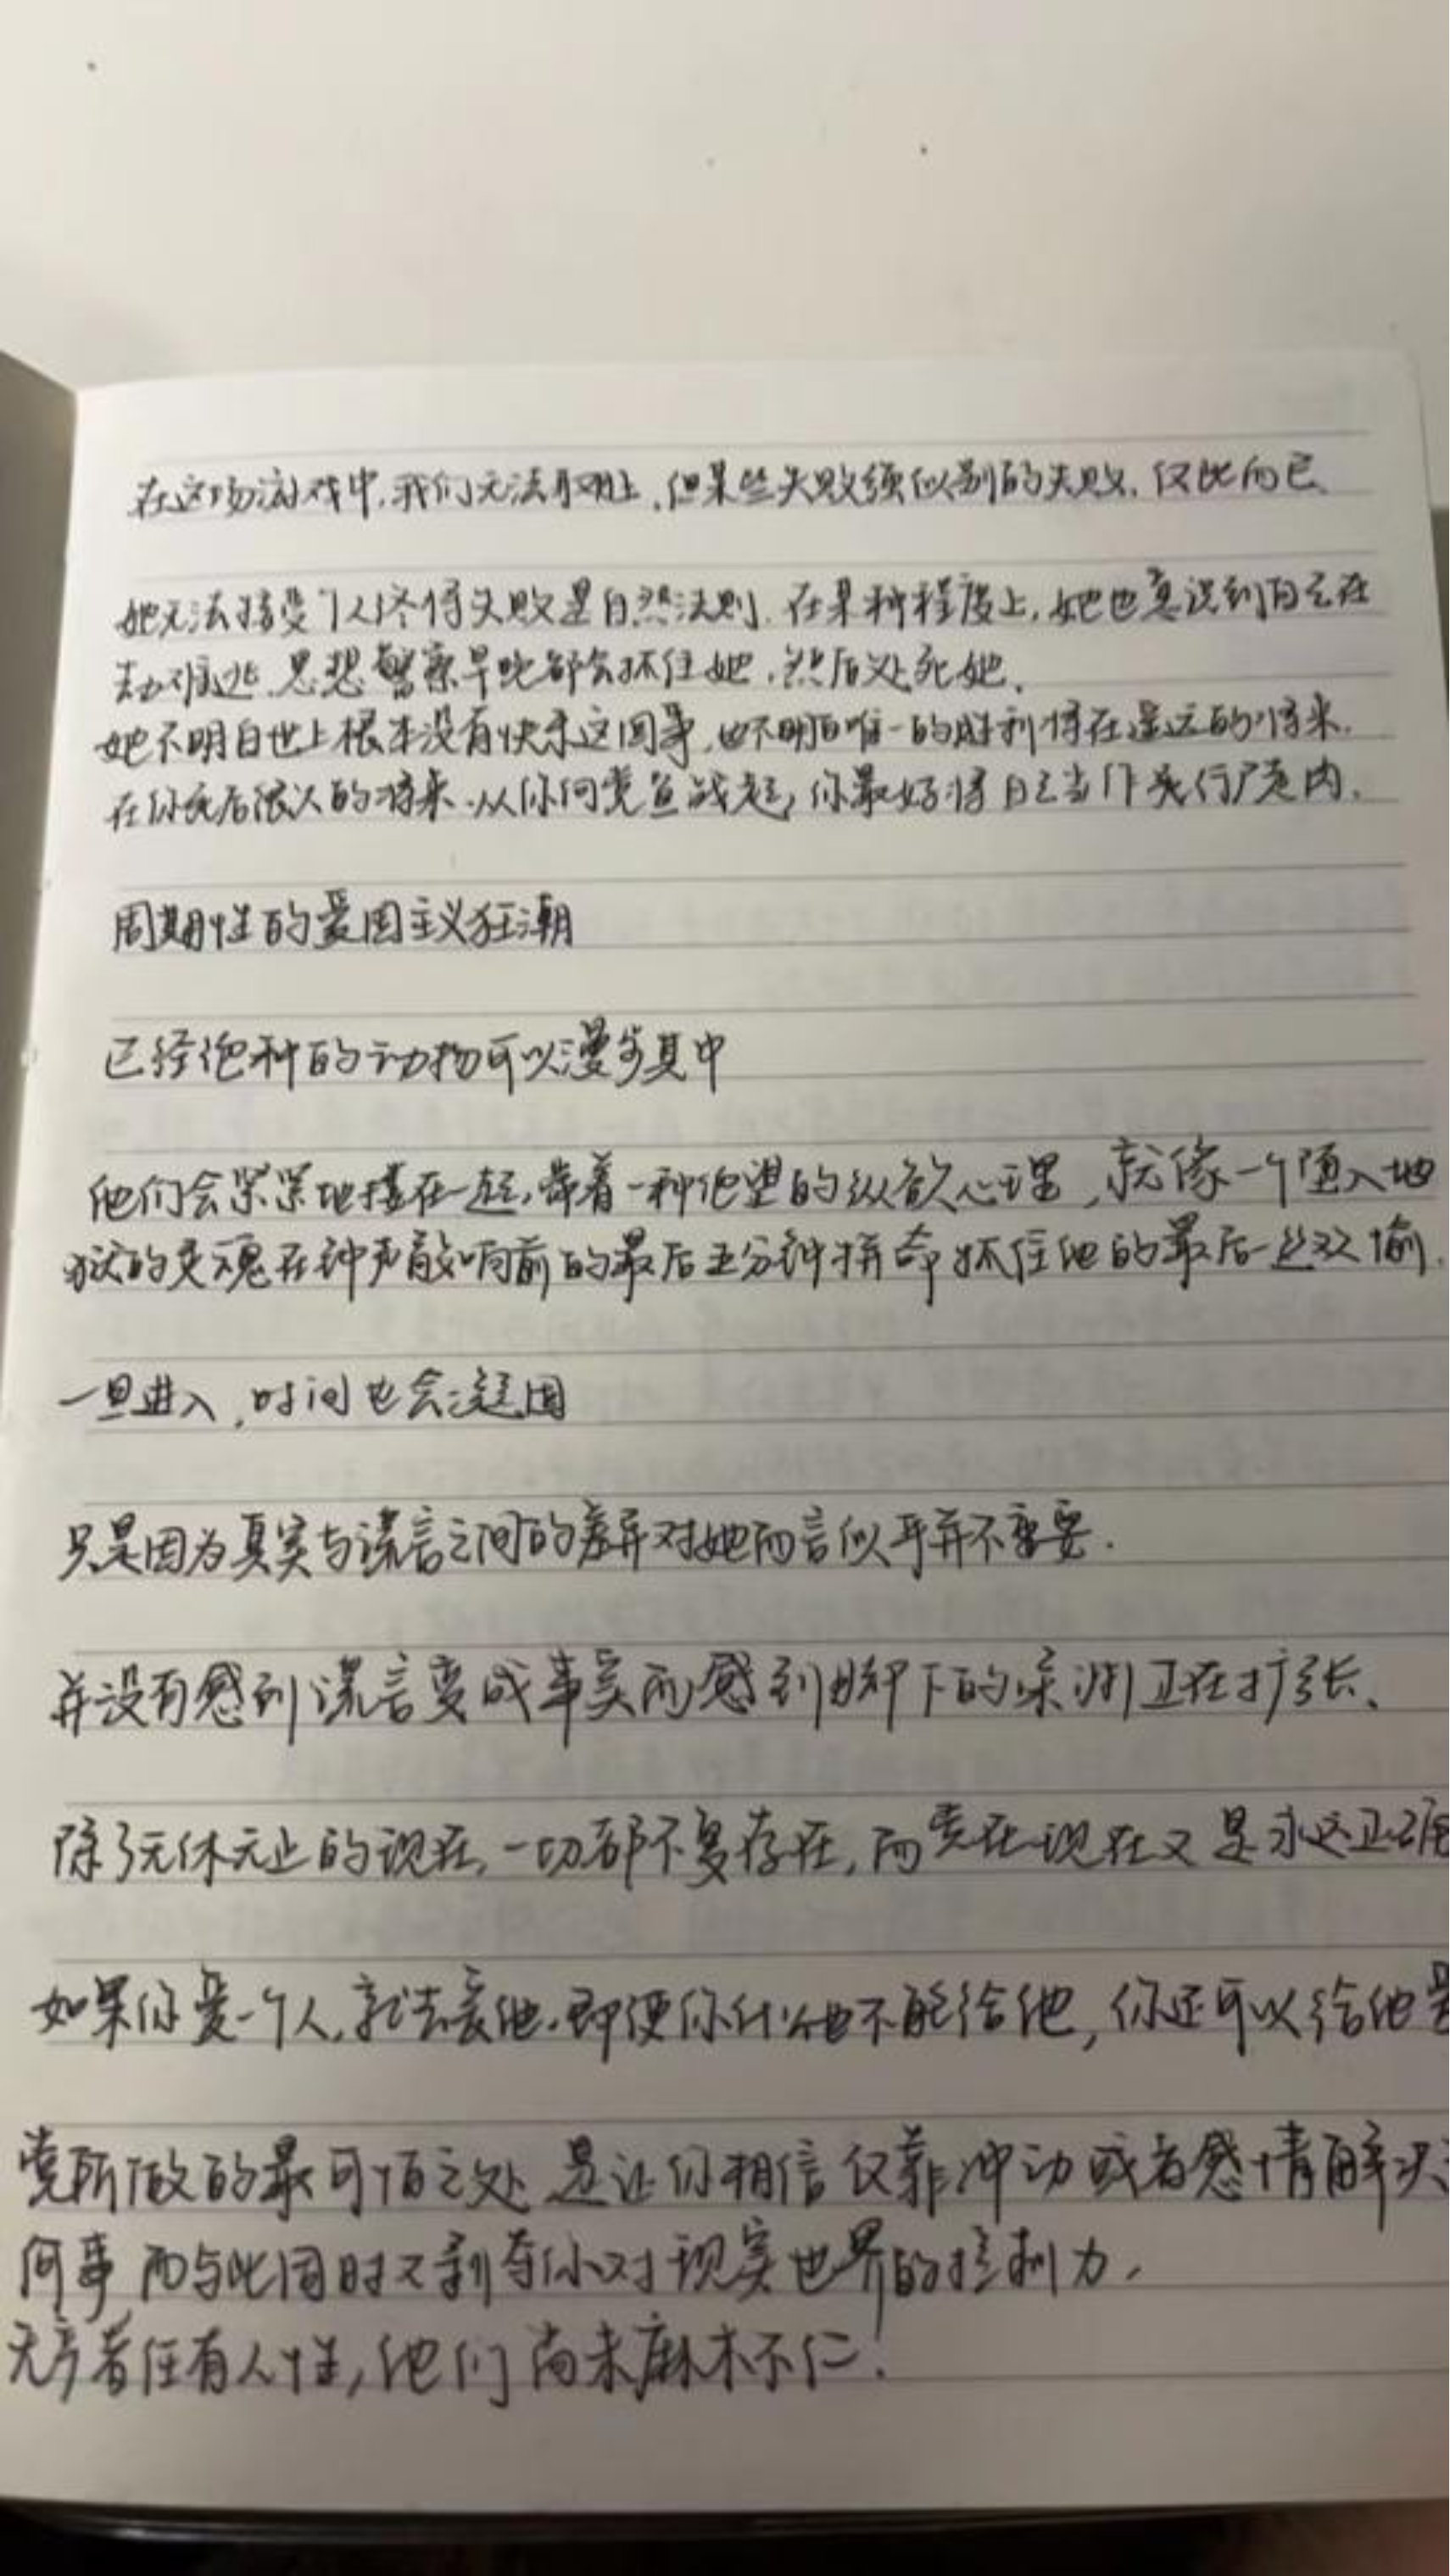 在这场游戏中,我们无法取胜,但某些失败强似别的失败,仅此而已、
她无法接受个人终将失败是自然法则.在某种程度上,她也意识到自己在
劫难逃.思想警察早晚都会抓住她,然后处死她.
她不明白世上根本没有快乐这回事,也不明白唯一的胜利将在遥远的将来.
在你死后很久的将来.从你向党宣战起,你最好将自己当作具行尸走肉.
周期性的爱国主义狂潮
已经绝种的动物可以漫步其中
他们会紧紧地搂在一起,带着一种绝望的纵欲心理,就像一个堕入地
狱的灵魂在钟声敲响前的最后五分钟拼命抓住他的最后一丝欢愉.
一旦进入,时间也会凝固
只是因为真实与谎言之间的差异对她而言似乎并不重要.
并没有感到谎言变成事实而感到脚下的深渊正在扩张、
除了无休无止的现在,一切都不复存在,而党在现在又是永远正确
如果你爱一个人,就去爱他.即便你什么也不能给他,你还可以给他
党所做的最可怕之处是让你相信仅靠冲动或者感情解决
何事而与此同时又剥夺你对现实世界的控制力.
无产者任有人性,他们尚未麻木不仁!